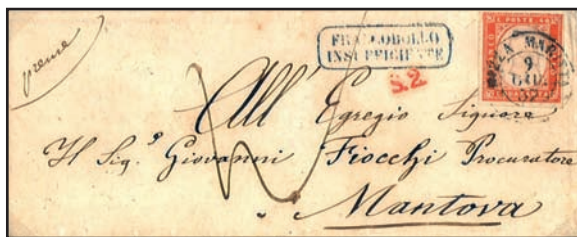 preme
FRANCOBOLLO
INSUFFICIENTE
S.2.
9
All'
Egregio Signore
Il Sig.ʳ Giovanni Fiocchi Procuratore
Mantova